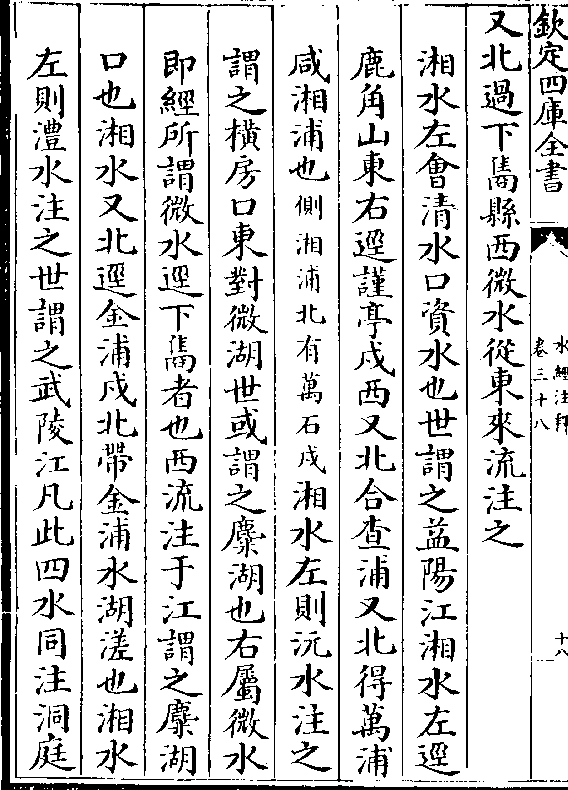 欽定四庫全書
水經注釋
卷三十八
十八
又北過下雋縣西微水從東來流注之
湘水左會清水口資水也世謂之益陽江湘水左逕
鹿角山東右逕謹亭戍西又北合查浦又北得萬浦
咸湘浦也側湘浦北有萬石戍湘水左則沅水注之
謂之橫房口東對微湖世或謂之麋湖也右屬微水
即經所謂微水逕下雋者也西流注于江謂之麋湖
口也湘水又北逕金浦戍北帶金浦水湖溠也湘水
左則澧水注之世謂之武陵江凡此四水同注洞庭